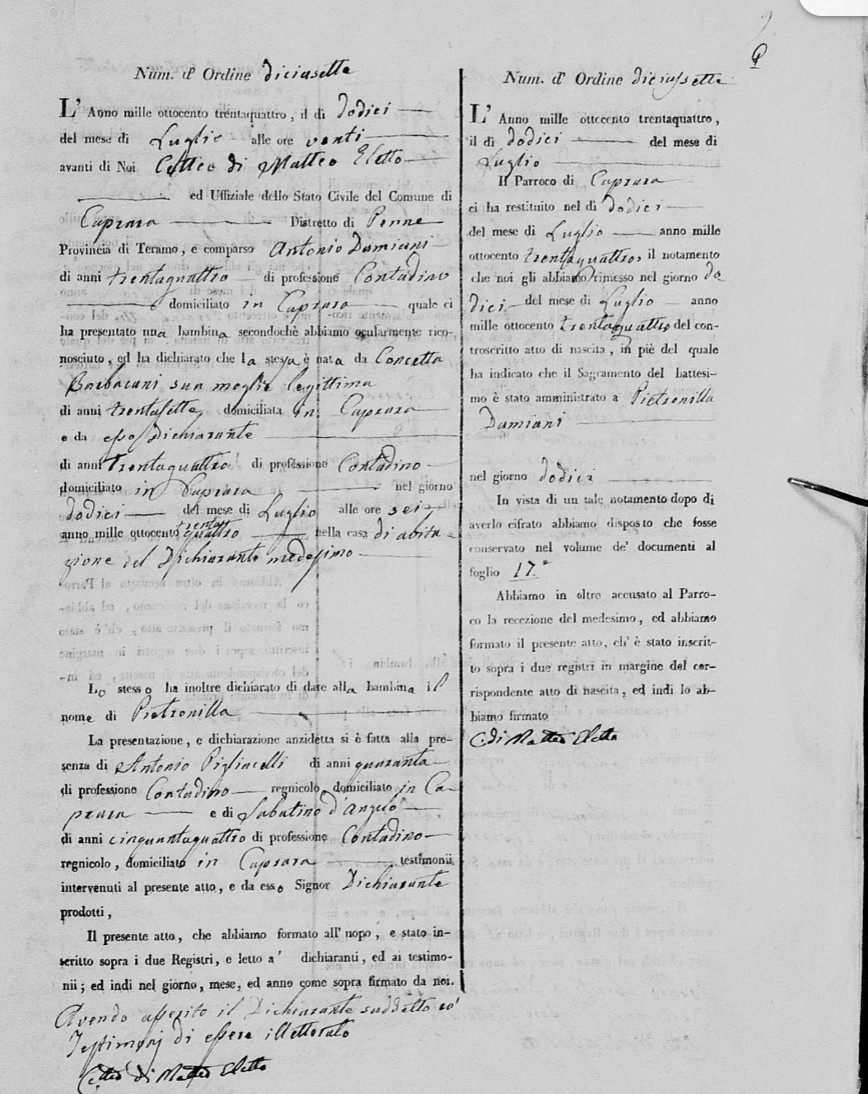 Num. d' Ordine diciasette
L' Anno mille ottocento trentaquattro, il di dodici
del mese di Luglio alle ore venti
avanti di Noi di Matteo Eletto
ed Uffiziale dello Stato Civile del Comune di
Caprara Distretto di Penne
Provincia di Teramo, e comparso Antonio Damiani
di anni trentaquattro di professione Contadino
domiciliato in Caprara quale ci
ha presentato una bambina secondochè abbiamo ocularmente rico-
nosciuto, ed ha dichiarato che la stessa è nata da Concetta
Barbacani sua moglie legittima
di anni trentasette domiciliata in Caprara
e da esso Dichiarante
di anni trentaquattro di professione Contadino
domiciliato in Caprara nel giorno
dodici del mese di Luglio alle ore sei
anno mille ottocento trenta
quattro nella casa di abita-
zione del Dichiarante medesimo
Lo stesso ha inoltre dichiarato di dare alla bambina il
nome di Pietronilla
La presentazione, e dichiarazione anzidetta si è fatta alla pre-
senza di Antonio Pigliacelli di anni quaranta
di professione Contadino regnicolo, domiciliato in Ca-
prara e di Sabatino d'Angelo
di anni cinquantaquattro di professione Contadino
regnicolo, domiciliato in Caprara testimonii
intervenuti al presente atto, e da esso Signor Dichiarante
prodotti,
Il presente atto, che abbiamo formato all' uopo, e stato in-
scritto sopra i due Registri, e letto a' dichiaranti, ed ai testimo-
nii; ed indi nel giorno, mese, ed anno come sopra firmato da noi.
Avendo asserito il Dichiarante suddetto co'
Testimonj di essere illetterato
di Matteo Eletto
Num. d' Ordine diciassette
L' Anno mille ottocento trentaquattro,
il di dodici del mese di
Luglio
Il Parroco di Caprara
ci ha restituito nel di dodici
del mese di Luglio anno mille
ottocento trentaquattro, il notamento
che noi gli abbiamo rimesso nel giorno do
dici del mese di Luglio anno
mille ottocento trentaquattro del con-
troscritto atto di nascita, in piè del quale
ha indicato che il Sagramento del battesi-
mo è stato amministrato a Pietronilla
Damiani
nel giorno dodici
In vista di un tale notamento dopo di
averlo cifrato abbiamo disposto che fosse
conservato nel volume de' documenti al
foglio 17.
Abbiamo in oltre accusato al Parro-
co la recezione del medesimo, ed abbiamo
formato il presente atto, ch' è stato inscrit-
to sopra i due registri in margine del cor-
rispondente atto di nascita, ed indi lo ab-
biamo firmato
di Matteo Eletto